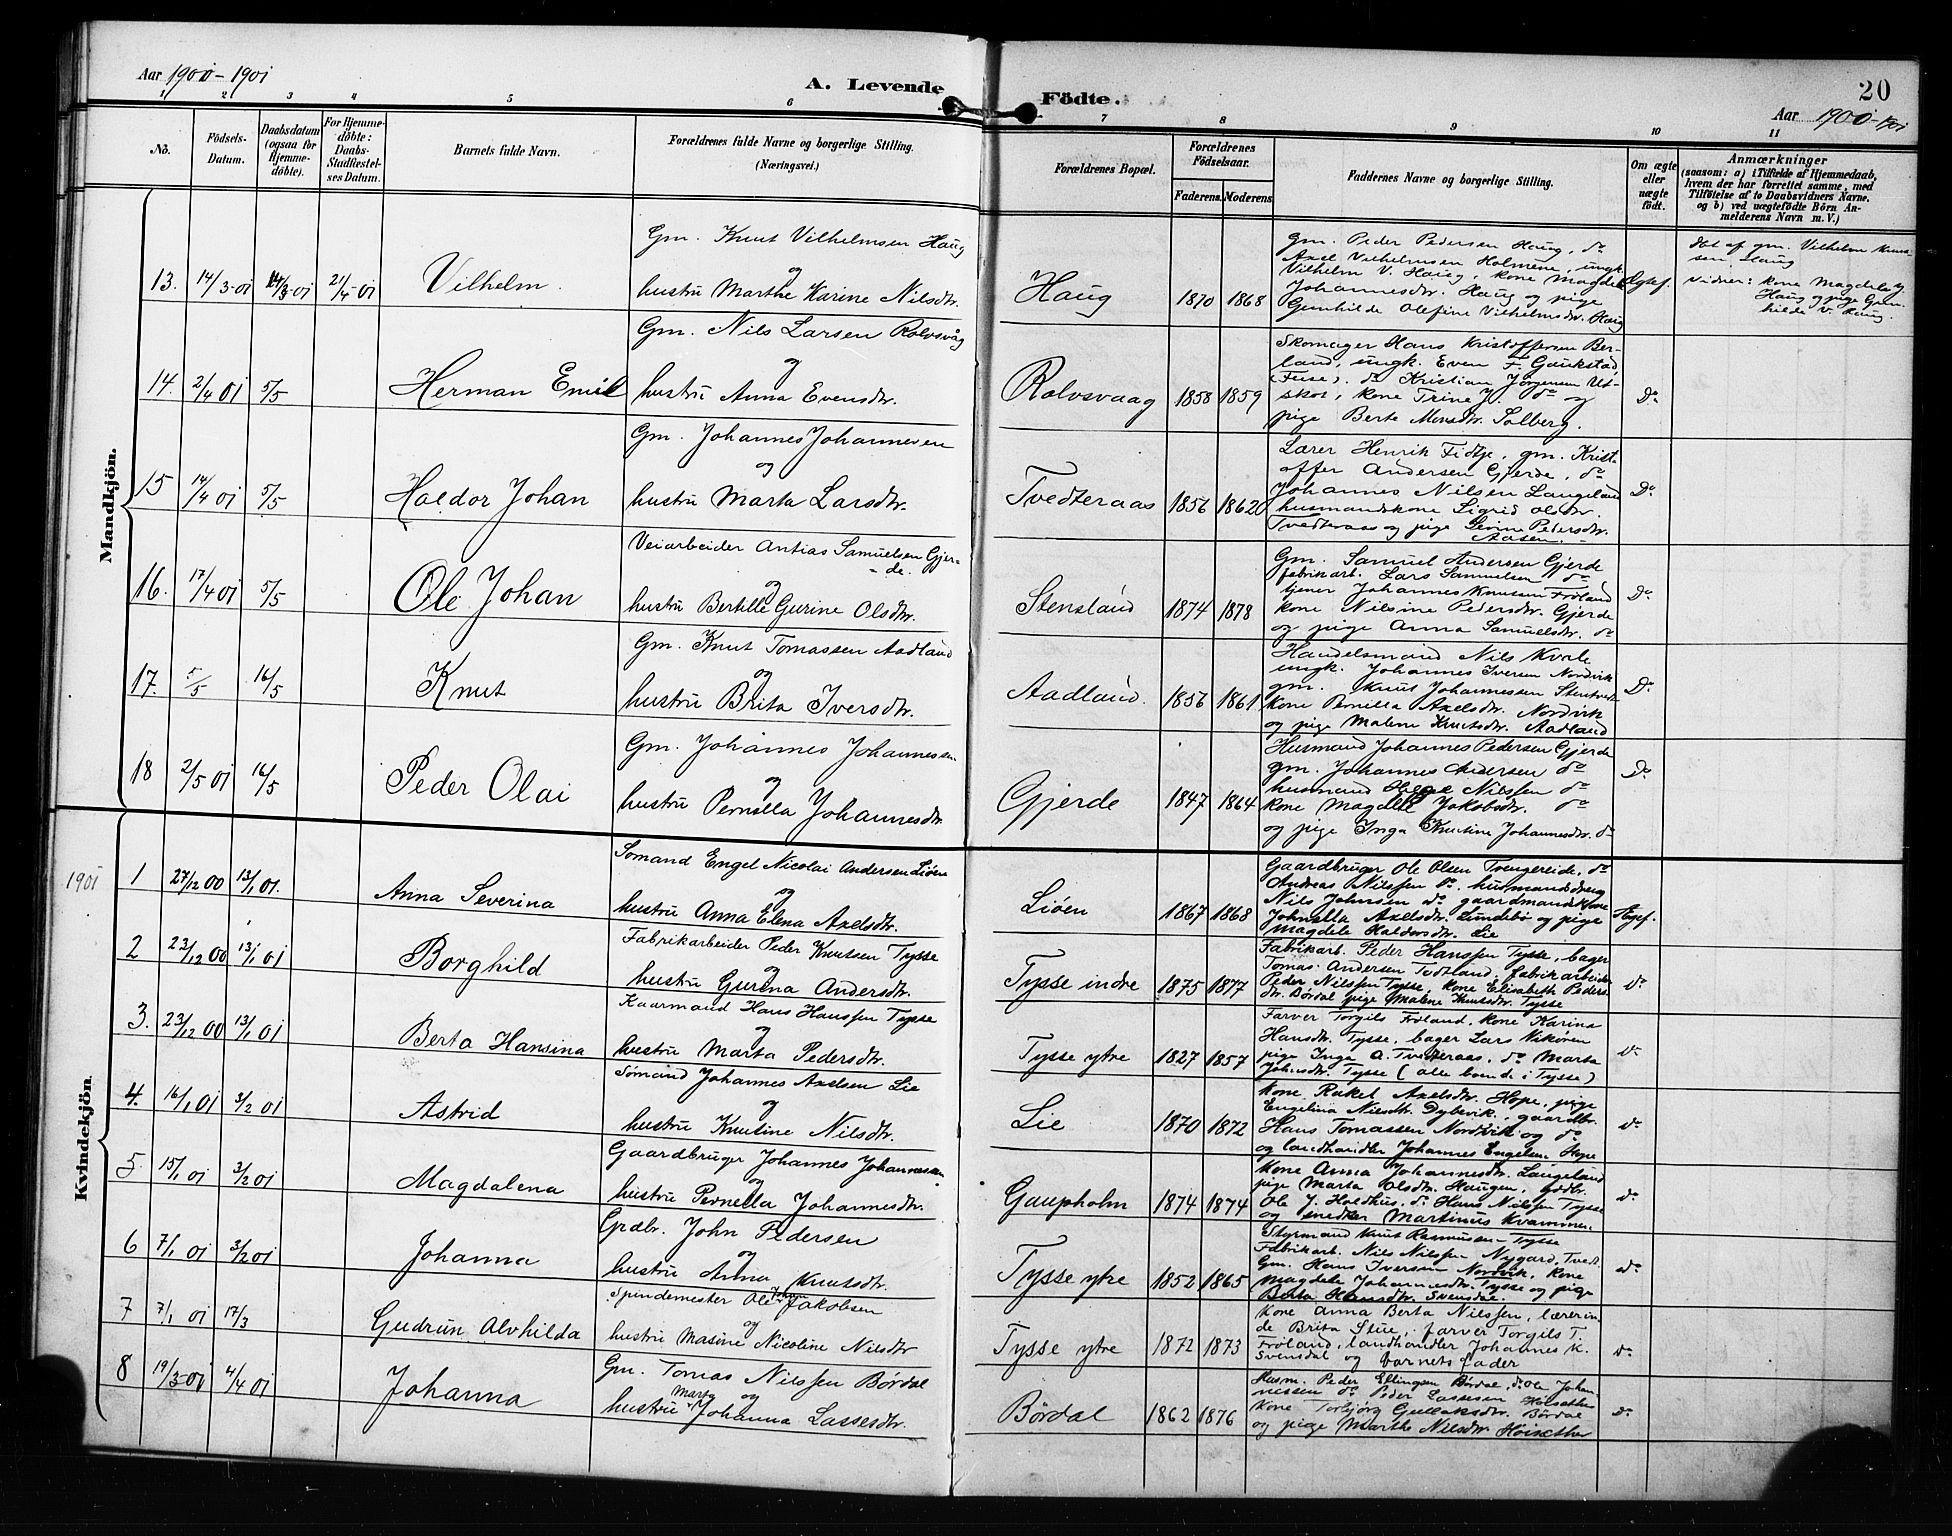 Aar 1900-1901
A. Levende Födte.
20
Aar 1900-1901
1 2 3 4 5 6 7 8 9 10 11
No.
Födsels-Datum.
Daabsdatum (ogsaa for Hjemmedöbte).
For Hjemmedöbte: Daabs-Stadfæstelses Datum.
Barnets fulde Navn.
Forældrenes fulde Navne og borgerlige Stilling. (Næringsvei.)
Forældrenes Bopæl.
Forældrenes Födselsaar.
Faderens. Moderens.
Faddernes Navne og borgerlige Stilling.
Om ægte eller uægte födt.
Anmærkninger
(saasom: a) i Tilfælde af Hjemmedaab,
hvem der har forrettet samme, med
Tilföielse af to Daabsvidners Navne.
og b) ved uægtefödte Börn Anmelderens Navn m. V.)
Mandkjön.
13. 14/3 01 14/3 01 21/4 01 Vilhelm.
Gm. Knut Vilhelmsen Haug
og
hustru Marthe Karine Nilsdtr.
Haug 1870 1868
Gm. Peder Pedersen Haug, do
Axel Vilhelmsen Holmene, ungk.
Vilhelm V. Haug, kone Magdele
Johannesdtr. Haug og pige
Gunhilde Olefine Vilhelmsdtr. Haug
Ægtef.
Døbt af gm. Vilhelm Knutsen Haug
Vidner: kone Magdela
Haug og pige Gunhilde V. Haug.
14. 2/4 01 5/5 Herman Emil
Gm. Nils Larsen Rolvsvåg
og
hustru Anna Evensdtr.
Rolvsvaag 1858 1859
Skomager Hans Kristoffersen Berland, ungk. Even F. Gaukstad,
do Kristian Jørgensen Utskot, kone Trine J. do og
pige Berte Monsdtr. Solberg.
Do
15 14/4 01 5/5 Haldor Johan
Gm. Johannes Johannesen
og
hustru Marta Larsdtr.
Tvedteraas 1856 1862
Lærer Henrik Fidtje, gm. Kristoffer Andersen Gjerde, do
Johannes Nilsen Langeland
husmandskone Sigrid Olsdtr.
Tvedteraas og pige Pedersdtr.
Aasen.
Do
16. 17/4 01 5/5 Ole Johan
Veiarbeider Antias Samuelsen Gjerde.
og
hustru Bertille Gurine Olsdtr.
Stensland 1874 1878
Gm. Samuel Andersen Gjerde
fabrikarb. Lars Samuelsen do
tjener Johannes Knutsen Frøland
kone Nilsine Pedersdtr. Gjerde
og pige Anna Samuelsdtr. do
Do
17. 5/5 16/5 Knut
Gm. Knut Tomassen Aadland
og
hustru Brita Iversdtr.
Aadland. 1856 1861
Handelsmand Nils Kvale
ungk. Johannes Iversen Nordvik
gm. Knut Johannessen
kone Pernilla Axelsdtr. Nordvik
og pige Malene Knutsdtr. Aadland
Do
18 2/5 01 16/5 Peder Olai
Gm. Johannes Johannessen
og
hustru Pernilla Johannesdtr.
Gjerde 1847 1864
Husmand Johannes Pedersen Gjerde
gm. Johannes Andersen do
husmand Nilssen do
kone Magdele Jakobsdtr. do
og pige Inga Knutine Johannesdtr. do
Do
Kvindekjön.
1901
1 27/12 00 13/1 01. Anna Severina
Sømand Engel Nicolai Andersen Liøen
og
hustru Anna Elena Axelsdtr.
Liøen 1867 1868
Gaardbruger Ole Olsen Trengereide, do
Andreas Nilssen do, husmandsdreng
Nils Johnsen do gaardmandskone
Johnella Axelsdtr. Lundebø og pige
Magdele Haldorsdtr. Lie
Ægtef.
2 23/12 00 13/1 01 Borghild
Fabrikarbeider Peder Knutsen Tysse
og
hustru Gurina Andersdtr.
Tysse indre 1875 1877
Fabrikarb. Peder Hanssen Tysse, bager
Tomas Andersen Todtland, fabrikarbeider
Peder Nilssen Tysse, kone Elisabeth Pedersdtr. Børdal, pige Malene Knutsdtr. Tysse
do
3. 23/12 00 13/1 01 Berta Hansina
Kaarmand Hans Hanssen Tysse
og
hustru Marta Pedersdtr.
Tysse ytre 1827 1857
Farver Torgils Frøland, kone Karina
Hansdtr. Tysse, bager Lars Nikøren
pige Inga A. Tvedteraas, do Marta
Johnsdtr. Tysse (alle boende i Tysse)
do
4. 16/1 01 3/2 01 Astrid
Sømand Johannes Axelsen Lie
og
hustru Knutine Nilsdtr.
Lie 1870 1872
Kone Rakel Axelsdtr. Hope, pige
Engelina Nilsdtr. Dybevik, gaardbr.
Hans Tomassen Nordvik og do
og landhandler Johannes Engelsen Hope
do
5. 15/1 01 3/2 01 Magdalena
Gaardbruger Johannes Johannessen
og
hustru Pernella Johannesdtr.
Gaupholm 1874 1874
Kone Anna Johannesdtr. Langeland
pige Marta Olsdtr. Haugen, gdbr.
Ole J. Holdhus, do Hans Nilssen Tysse
og snedker Martinus Kvammen.
do
6 7/1 01 3/2 01 Johanna
Grdbr. John Pedersen
og
hustru Anna Knutsdtr.
Tysse ytre 1852 1865
Styrmand Knut Rasmussen Tysse
Fabrikarb. Nils Nilssen Nygard, Tvedt.
Gm. Hans Iversen Nordvik, kone
Magdele Johannesdtr. Tysse og pige
Berta Hansdtr. Svensdal.
do
7 7/1 01 17/3 Gudrun Alvhilda
Spindemester Ole Johan Jakobsen
og
hustru Masine Nicoline Nilsdtr
Tysse ytre 1872 1873
Kone Anna Berta Nilssen, lærerinde Brita Stue, farver Torgils T.
Frøland, landhandler Johannes K.
Svensdal og barnets fader
do
8 19/3 01 4/4 01 Johanna
Gm. Tomas Nilssen Børdal
og
hustru Marta Johanna Lassesdtr.
Børdal 1862 1876
Husm. Peder Ellingsen Børdal, do Ole Johannessen do Peder Lassesen
Kone Torbjørg Gullaksdtr. Børdal
og pige Marthe Nilsdtr Høisæther
do